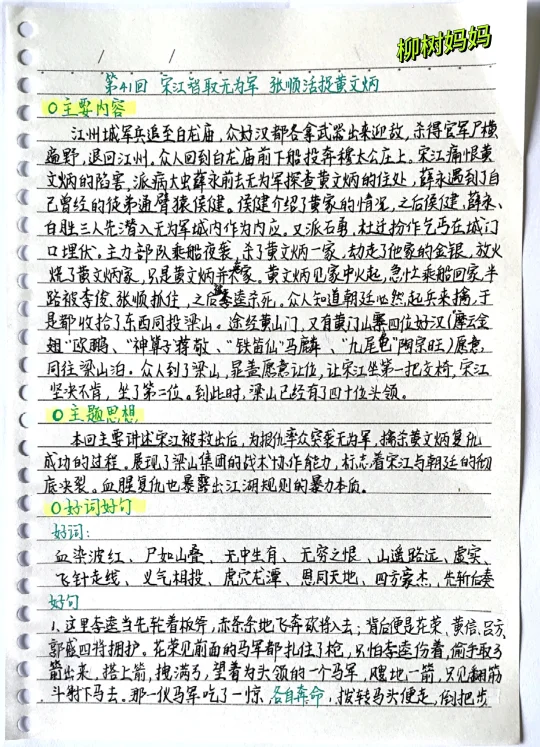 柳树妈妈
第41回 宋江智取无为军 张顺活捉黄文炳
○主要内容
江州城军兵追至白龙庙，众好汉都各拿武器出来迎敌，杀得官军尸横
遍野，退回江州。众人回到白龙庙前下船投奔穆太公庄上。宋江痛恨黄
文炳的陷害，派病大虫薛永前去无为军探查黄文炳的住处，薛永遇到了自
己曾经的徒弟通臂猿侯健。侯健介绍了黄家的情况，之后侯健、薛永、
白胜三人先潜入无为军城内作为内应。又派石勇、杜迁扮作乞丐在城门
口埋伏。主力部队乘船夜袭，杀了黄文炳一家，劫走了他家的金银，放火
烧了黄文炳家，只是黄文炳并未在家。黄文炳见家中火起，急忙乘船回家，半
路被李俊、张顺抓住，之后被李逵杀死。众人知道朝廷必然起兵来擒，于
是都收拾了东西同投梁山。途经黄山门，又有黄门山寨四位好汉（摩云金
翅"欧鹏、"神算子"蒋敬、"铁笛仙"马麟、"九尾龟"陶宗旺）愿意
同往梁山泊。众人到了梁山，晁盖愿意让位，让宋江坐第一把交椅，宋江
坚决不肯，坐了第二位。到此时，梁山已经有了四十位头领。
○主题思想
本回主要讲述宋江被救出后，为报仇率众突袭无为军，擒杀黄文炳复仇
成功的过程。展现了梁山集团的战术协作能力，标志着宋江与朝廷的彻
底决裂。血腥复仇也暴露出江湖规则的暴力本质。
○好词好句
好词：
血染波红、尸如山叠、无中生有、无穷之恨、山遥路远、虚实、
飞针走线、义气相投、虎穴龙潭、恩同天地、四方豪杰、先斩后奏
好句
1、这里李逵当先轮着板斧，赤条条地飞奔砍将入去；背后便是花荣、黄信、吕方、
郭盛四将拥护。花荣见前面的马军都扎住了枪，只怕李逵伤着，偷手取弓
箭出来，搭上箭，拽满弓，望着为头领的一个马军，飕地一箭，只见翻筋
斗射下马去。那一伙马军吃了一惊，各自奔命，拨转马头便走，倒把步